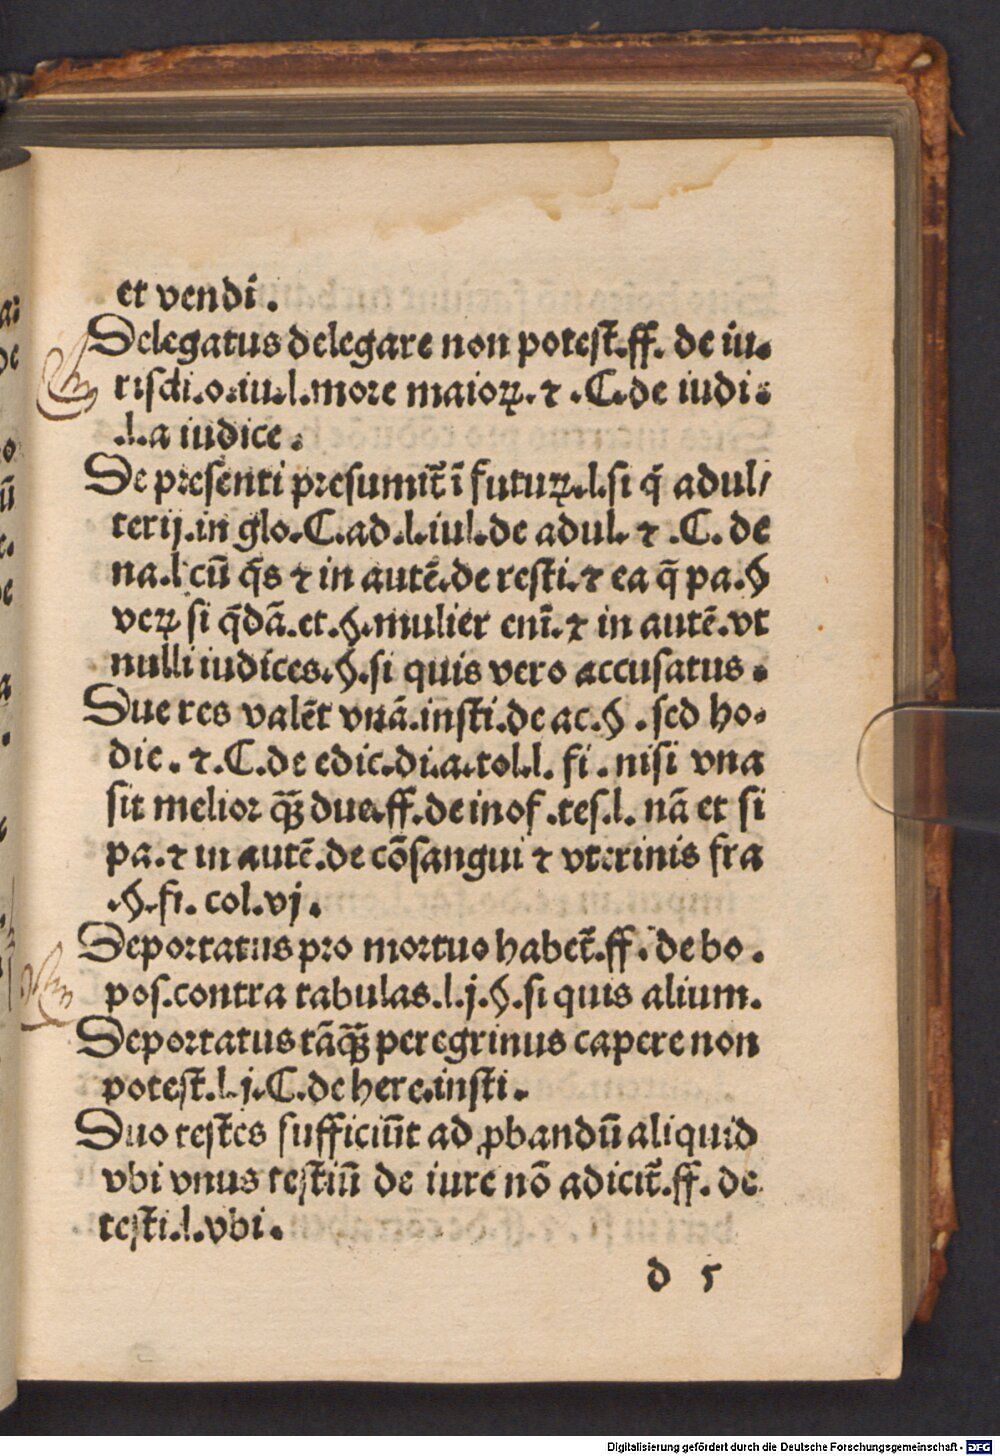 et vendi.
Delegatus delegare non potest̄.ff. de iu.
risdi.o.iu.l.more maioꝝ.⁊ .C.de iudi.
.l.a iudice.
De presenti presumit̄ ī futuꝝ.l.si q̄ adul/
terij.in glo.C.ad.l.iul.de adul. ⁊ .C. de
na.l cū q̄s ⁊ in autē.de resti.⁊ ea q̄ pa.§
veꝝ si q̄dā.et.§.mulier eni̅.⁊ in autē.vt
nulli iudices.§.si quis vero accusatus.
Due res valēt vnā.insti.de ac.§ .sed ho-
die. ⁊.C.de edic.di.a.tol.l. fi. nisi vna
sit melior q̄ȝ due.ff.de inof.tes.l. nā et si
pa.⁊ in autē.de cōsangui ⁊ vterinis fra
.§.fi. col.vj.
Deportatus pro mortuo habet̄.ff. de bo.
pos.contra tabulas.l.j.§.si quis alium.
Deportatus tāq̄ȝ peregrinus capere non
potest̄.l.j.C.de here.insti.
Duo testes sufficiūt ad ꝓbandū aliquid
vbi vnus testiū de iure nō adicit̄.ff. de
testi.l.vbi.
d 5
Digitalisierung gefördert durch die Deutsche Forschungsgemeinschaft - DFG